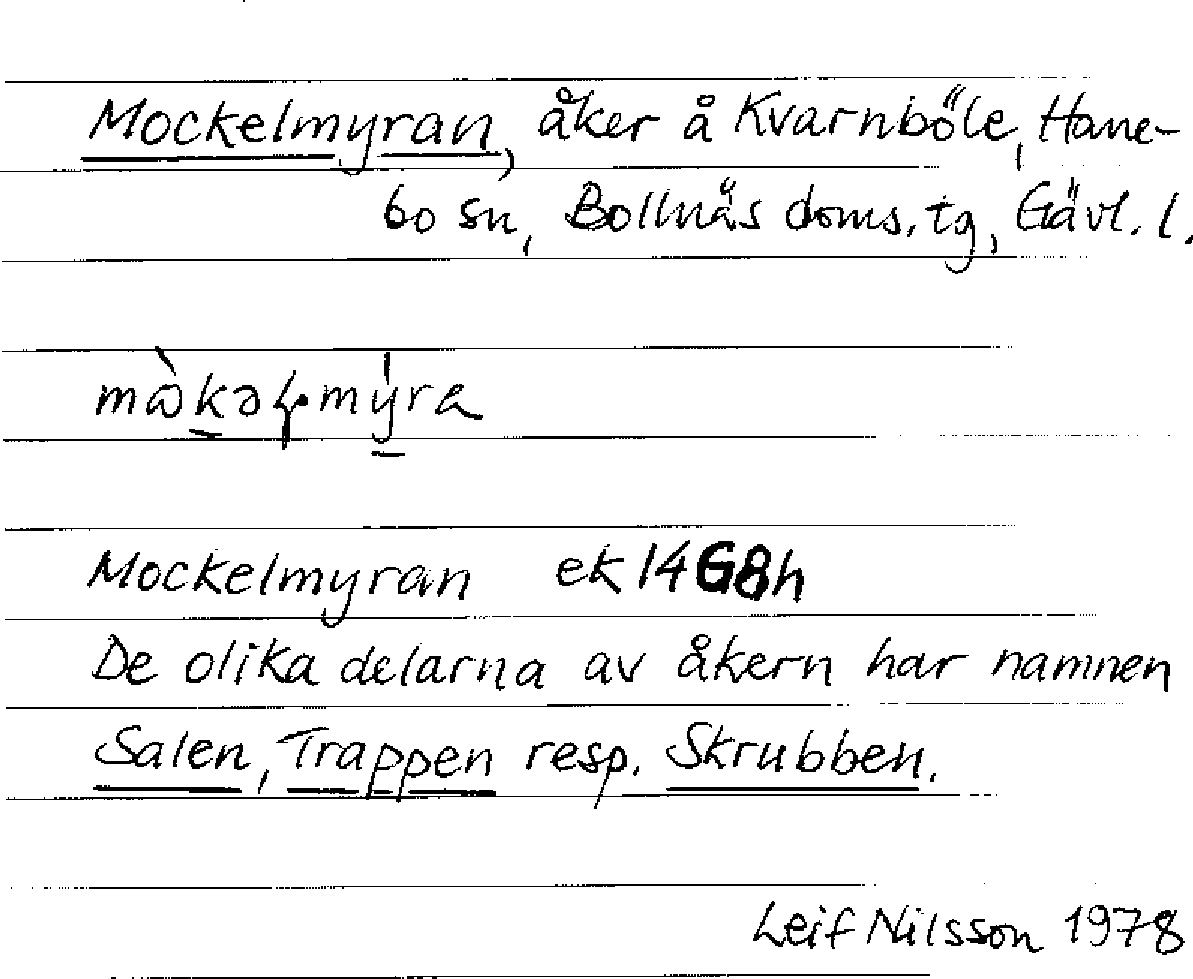 Mockelmyran, åker å Kvarnböle, Hane-
bo sn, Bollnäs doms. tg, Gävl. l.
Mockelmyran ek 14G8h
De olika delarna av åkern har namnen
Salen, Trappen resp. Skrubben.
Leif Nilsson 1978